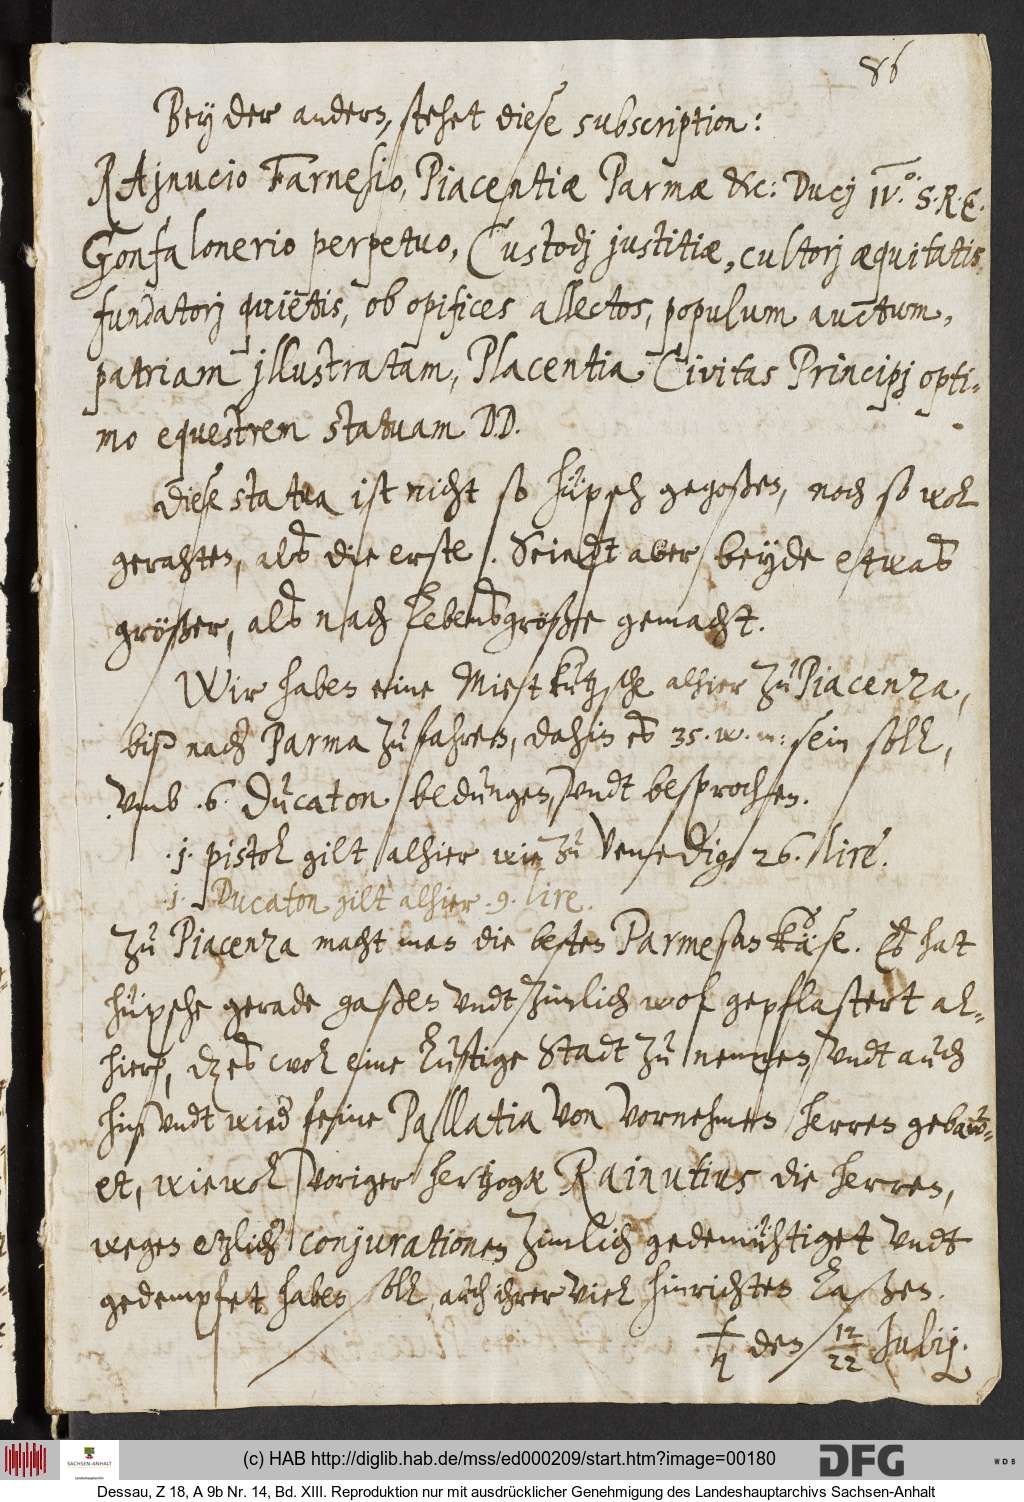 86
Bey der andern, stehet diese subscription:
RAjnucio Farnesio, Piacentiæ Parmæ &c: Ducj IV.º S.R.E.
Gonfalonerio perpetuo, Custodj justitiæ, cultorj æquitatis
fundatorj quietis, ob opifices allectos, populum auctum,
patriam jllustratam, Placentia Civitas Principj opti-
mo equestrem statuam D.D.
Diese statua ist nicht so hüpsch gegoßen, noch so wol
gerahten, als die erste. Seindt aber beyde etwas
größer, als nach Lebensgröße gemacht.
Wir haben eine Mietkutzsche alhier zu Piacenza,
biß nach Parma zu fahren, dahin es 35. w. m: sein soll,
vmb .6. Ducaton bedungen, vndt besprochen.
.j. pistol gilt alhier wie zu Venedig 26. lire.
.j. Ducaton gilt alhier .9. lire.
Zu Piacenza macht man die besten Parmesan Käse. Es hat
hüpsche gerade gaßen vndt zimlich wol gepflastert al-
hier, dz es wol eine lustige Stadt zu nennen, vndt auch
hin vndt wied feine Pallatia von vornehmen herren gebaw-
et, wiewol voriger hertzogk Rainutius die herren,
wegen etzlich conjurationen zimlich gedemühtiget vndt
gedempfet haben soll, auch ihrer viel hinrichten laßen.
♄ den 12/22 Julij.
(c) HAB http://diglib.hab.de/mss/ed000209/start.htm?image=00180
SACHSEN-ANHALT
Landeshauptarchiv
DFG
WDB
Dessau, Z 18, A 9b Nr. 14, Bd. XIII. Reproduktion nur mit ausdrücklicher Genehmigung des Landeshauptarchivs Sachsen-Anhalt